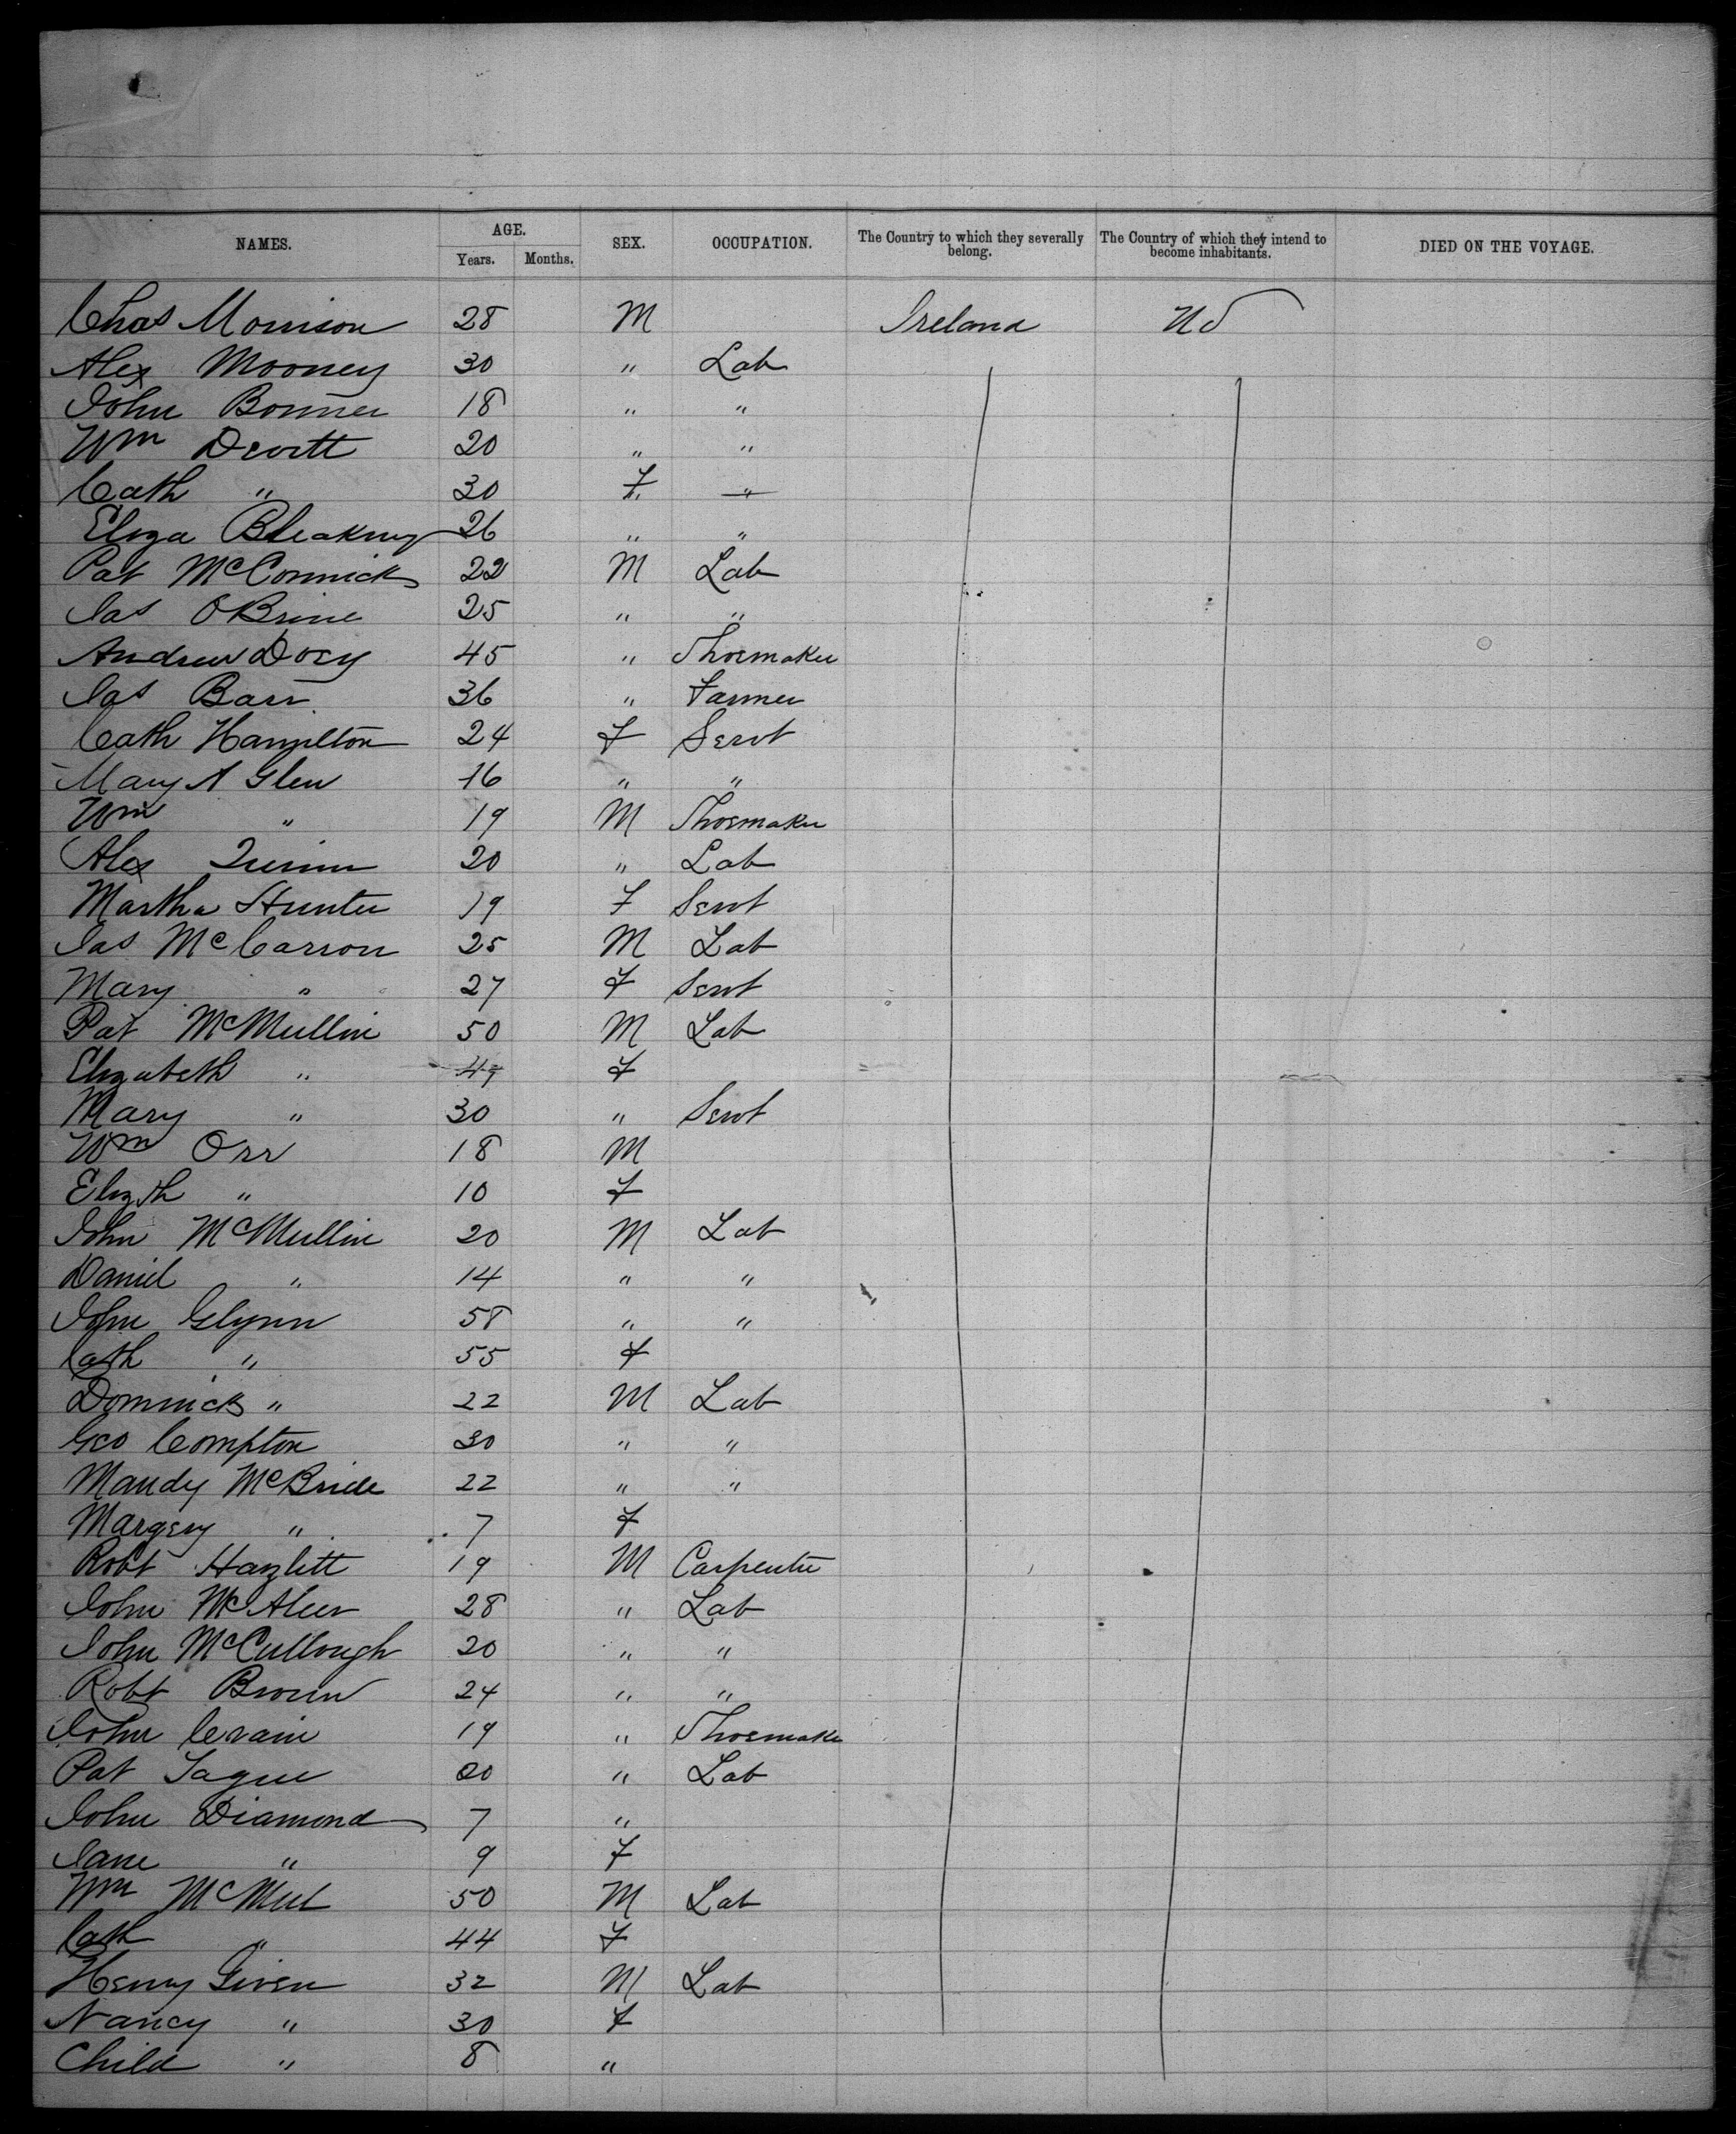 NAMES. AGE. Years. Months. SEX. OCCUPATION. The Country to which they severally belong. The Country of which they intend to become inhabitants. DIED ON THE VOYAGE.
Chas Morrison 28 M Ireland US
Alex Mooney 30 " Lab
John Bonner 18 " "
Wm Devitt 20 " "
Cath " 30 F "
Eliza Bleakney 26 " "
Pat McCormick 22 M Lab
Jas OBrine 25 " "
Andrew Docy 45 " Shoemaker
Jas Barr 36 " Farmer
Cath Hamilton 24 F Servt
Mary A Glen 16 " "
Wm " 19 M Shoemaker
Alex Quinn 20 " Lab
Martha Hunter 19 F Servt
Jas McCarron 25 M Lab
Mary " 27 F Servt
Pat McMullin 50 M Lab
Elizabeth " 49 F
Mary " 30 " Servt
Wm Orr 18 M
Elizth " 10 F
John McMullin 20 M Lab
Daniel " 14 " "
John Glynn 58 " "
Cath " 55 F
Dominick " 22 M Lab
Geo Compton 30 " "
Mandy McBride 22 " "
Margery " 7 F
Robt Hazlett 19 M Carpenter
John McAleer 28 " Lab
John McCullough 20 " "
Robt Brown 24 " "
John Crain 19 " Shoemaker
Pat Tague 20 " Lab
John Diamond 7 "
Jane " 9 F
Wm 50 M Lab
Cath " 44 F
Henry Given 32 M Lab
Nancy " 30 F
Child " 8 "